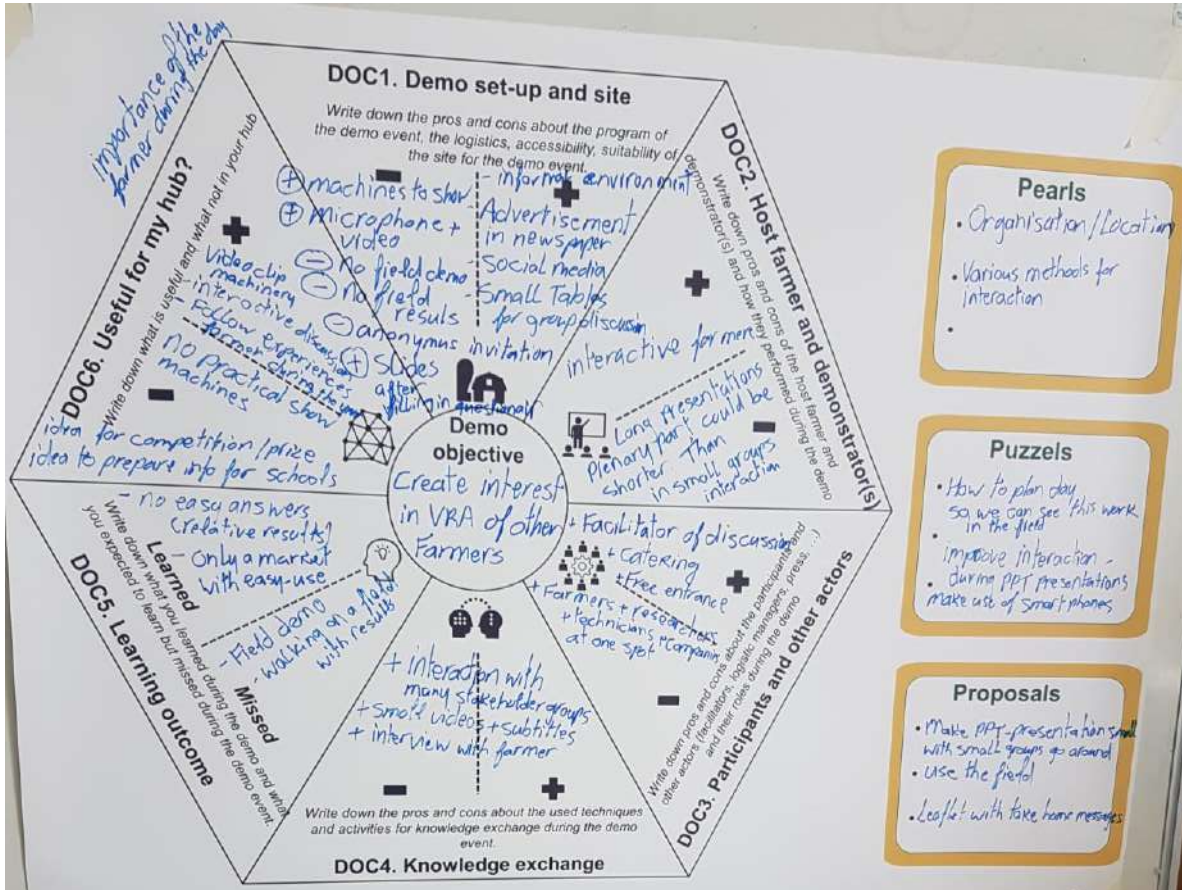 importance of the
farmer during the day
DOC1. Demo set-up and site
Write down the pros and cons about the program of
the demo event, the logistics, accessibility, suitability of
the site for the demo event.
+ machines to show
+ microphone +
video
- no field demo
- no field
resuls
- anonymus invitation
+ slides
after
filling in questionary
- informal environment
- Advertisement
in newspaper
- Social media
- Small Tables
for group discussin
DOC2. Host farmer and demonstrator(s)
Write down pros and cons of the host farmer and
demonstrator(s) and how they performed during the demo
+
interactive farmers
Long presentations
Plenary part could be
shorter. Than
in small groups
interaction
-
DOC3. Participants and other actors
Write down pros and cons about the participants and
other actors (facilitators, logistic managers, press, ...)
and their roles during the demo
+ Facilitator of discussion
+ Catering
+ Free entrance
+ Farmers + researchers
+ technicians + Companies
at one spot
-
DOC4. Knowledge exchange
Write down the pros and cons about the used techniques
and activities for knowledge exchange during the demo
event.
+ interaction with
many stakeholder groups
+ small videos + subtitles
+ interview with farmer
- +
DOC5. Learning outcome
Write down what you learned during the demo and what
you expected to learn but missed during the demo event.
Learned
- no easy answers
(relative results)
- Only a market
with easy-use
Missed
- Field demo
- walking on a field
with results
DOC6. Useful for my hub?
Write down what is useful and what not in your hub
+
- Videoclip
machinery
- interactive discussion
- Follow experiences
farmer during the year
-
no practical show
machines
idea for competition/prize
idea to prepare info for schools
Demo
objective
Create interest
in VRA of other
Farmers
Pearls
• Organisation/Location
• Various methods for
interaction
•
Puzzels
• How to plan day
so we can see this work
in the field
improve interaction -
• during PPT presentations
make use of smartphones
Proposals
• Make PPT-presentation small
with small groups go around
• use the field
• Leaflet with take home messages